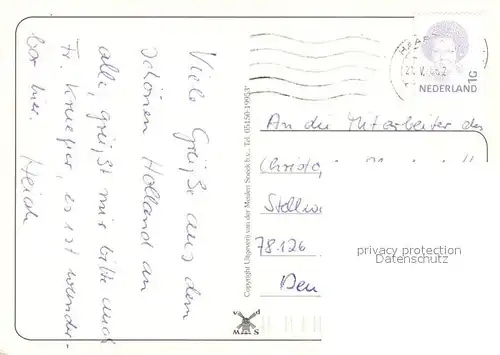 Viele Grüße aus dem
schönen Holland an
alle, grüßt mir bitte auch
Fr. Krueger, es ist wunder-
bar hier. Heidi
Copyright Uitgeverij van der Meulen Sneek b.v., Tel. 05150-19953*
v d
M S
NEDERLAND
1G
An die Mitarbeiter der
Christo
Stellwe
78126
Deu
privacy protection
Datenschutz